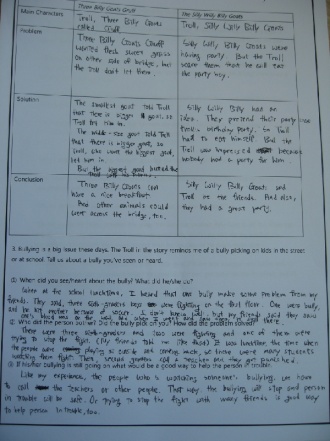 Three Billy Goats Gruff
The Silly Willy Billy Goats
Main Characters
Troll, Three Billy Goats
Gruff
Troll, Silly Willy Billy Goats
Problem
Three Billy Goats Gruff
wanted fresh sweet grass
on other side of bridge, but
the troll don't let them.
Silly Willy Billy Goats were
having party. But the Troll
warn them that he will eat
the party boy.
Solution
The smallest goat told Troll
that there is bigger goat, so
Troll let him in.
The middle-size goat told Troll
that there is bigger goat, so
troll, she were the biggest goat,
let him in.
But the biggest goat
Silly Willy Billy had an
idea. They pretend their party was
troll's birthday party. So Troll
had to eat himself. But the
Troll was impressed because
nobody had a party for him.
Conclusion
Three Billy Goats
have a nice breakfast.
And other animals could
went across the bridge, too.
Silly Willy Billy Goats and
Troll be the friends. And also,
they had a great party.
3. Bullying is a big issue these days. The Troll in the story reminds me of a bully picking on kids in the street
or at school. Tell us about a bully you've seen or heard.
① When did you see/heard about the bully? What did he/she do?
at the school lunchtime, I heard that one bully make some problem from my
friends. They said, three sixth-graders were fighting on the first floor. One were bully,
and
② Who did the person bully? Did the bully pick on you? How did the problem solved?
There were three sixth-graders and two were fighting and one of them were
trying to stop the fight. (My friends told me like that) It was lunchtime, the time when
the people were playing at outside and coming much, so there were many students
watching them fight. Then, several grade called a teacher and they got punished.
③ If another bullying is still going on what would be a good way to help the person in trouble.
Like my experience, the people who is watching someone's bullying, we have
to call the teachers or other people. That way the bullying will stop and person
in trouble will be safe. Or trying to stop the fight with many friends is good way
to help person in trouble, too.